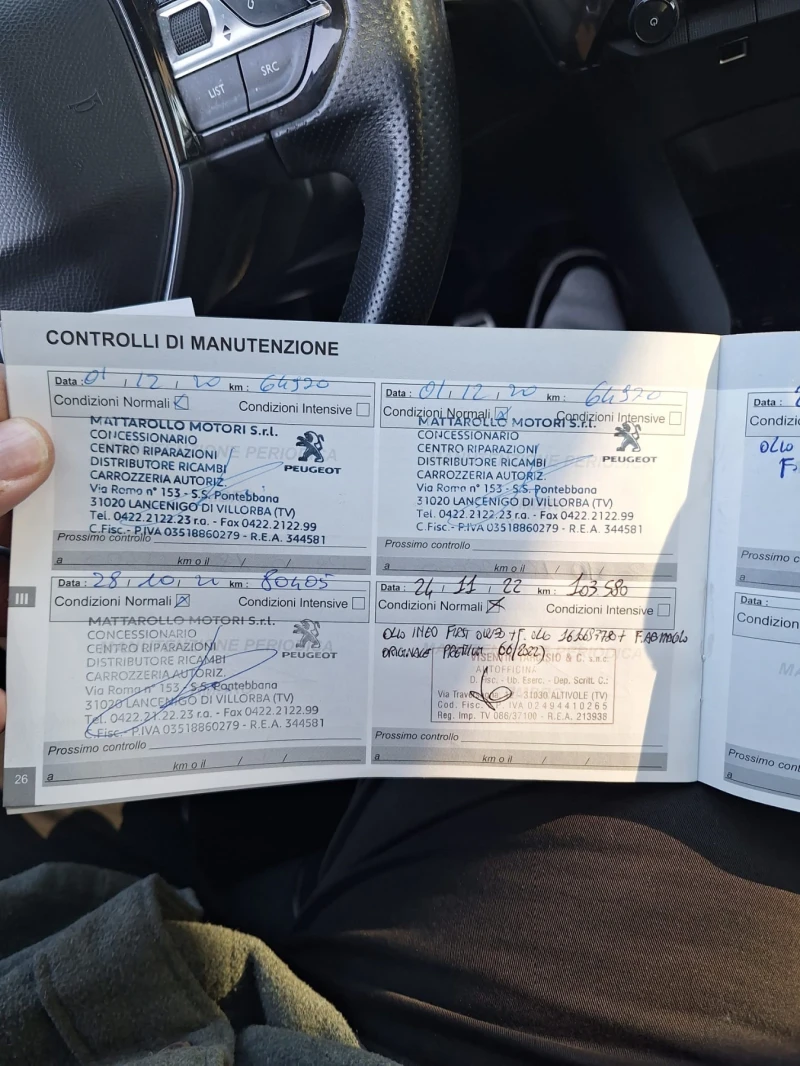 LIST
SRC
CONTROLLI DI MANUTENZIONE
Data : 01 , 12 , 20 km : 64920
Condizioni Normali Condizioni Intensive
MATTAROLLO MOTORI S.r.l.
CONCESSIONARIO
CENTRO RIPARAZIONI
DISTRIBUTORE RICAMBI
CARROZZERIA AUTORIZ.
Via Roma n° 153 - S.S. Pontebbana
31020 LANCENIGO DI VILLORBA (TV)
Tel. 0422.2122.23 r.a. - Fax 0422.2122.99
C.Fisc.- P.IVA 03518860279 - R.E.A. 344581
PEUGEOT
Prossimo controllo
a km o il / /
Data : 01, 12, 20 km : 64920
Condizioni Normali Condizioni Intensive
MATTAROLLO MOTORI S.r.l.
CONCESSIONARIO
CENTRO RIPARAZIONI
DISTRIBUTORE RICAMBI
CARROZZERIA AUTORIZ.
Via Roma n° 153 - S.S. Pontebbana
31020 LANCENIGO DI VILLORBA (TV)
Tel. 0422.2122.23 r.a. - Fax 0422.2122.99
C.Fisc.- P.IVA 03518860279 - R.E.A. 344581
PEUGEOT
Prossimo controllo
a km o il / /
Data : 28, 10, 21 km : 80405
Condizioni Normali Condizioni Intensive
MATTAROLLO MOTORI S.r.l.
CONCESSIONARIO
CENTRO RIPARAZIONI
DISTRIBUTORE RICAMBI
CARROZZERIA AUTORIZ.
Via Roma n° 153 - S.S. Pontebbana
31020 LANCENIGO DI VILLORBA (TV)
Tel. 0422.21.22.23 r.a. - Fax 0422.2122.99
C.Fisc.- P.IVA 03518860279 - R.E.A. 344581
PEUGEOT
Prossimo controllo
a km o il / /
Data : 24, 11, 22 km : 103580
Condizioni Normali Condizioni Intensive
OLIO INEO FIRST 0W30 + F. OLIO + F. ABITACOLO
ORIGINALE
& C. s.n.c.
AUTOFFICINA
D. Fisc. - Ub. Eserc. - Dep. Scritt. C.:
31030 ALTIVOLE (TV)
Cod. Fisc. P. IVA 02494410265
Reg. Imp. TV 066/37100 - R.E.A. 213938
Prossimo controllo
a km o il / /
III
26
Data :
Condizioni
OLIO
F.
Prossimo
a
Data :
Condizioni
Prossimo
a